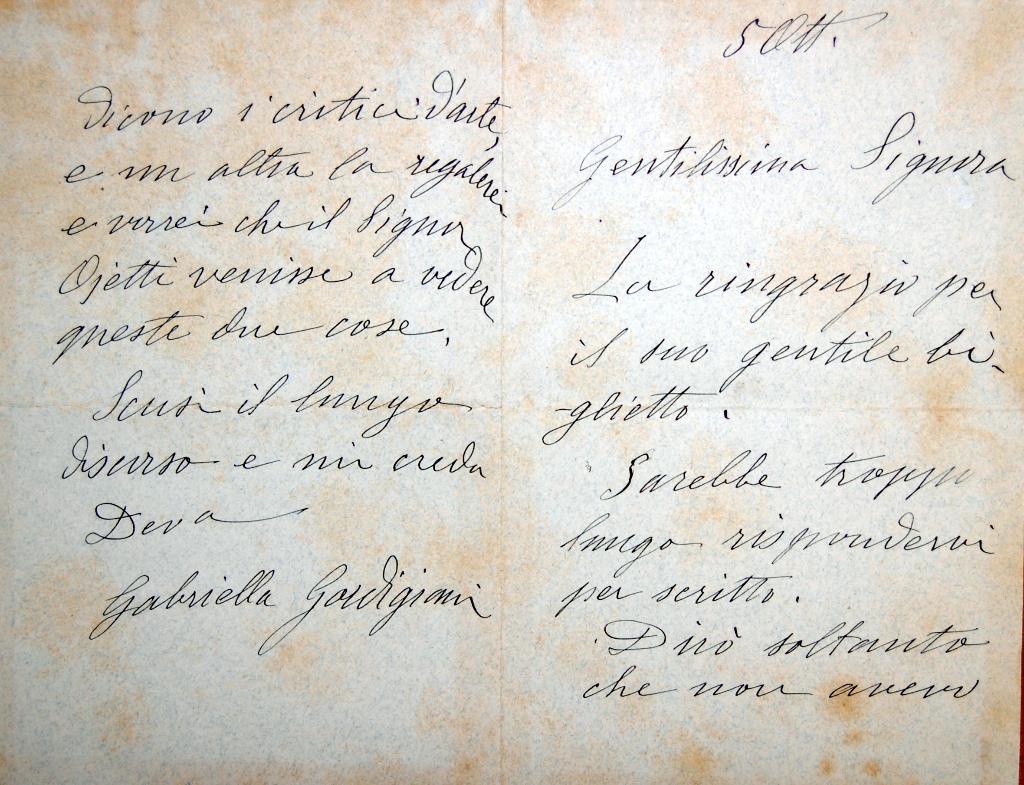 5 Ott.
Gentilissima Signora
La ringrazio per
il suo gentile bi-
-glietto.
Sarebbe troppo
lungo rispondervi
per scritto.
Dirò soltanto
che non avevo
dicono i critici d'arte,
e un altra la regalerei
e vorrei che il Signor
Ojetti venisse a vedere
queste due cose.
Scusi il lungo
discorso e mi creda
Deva
Gabriella Gordigiani